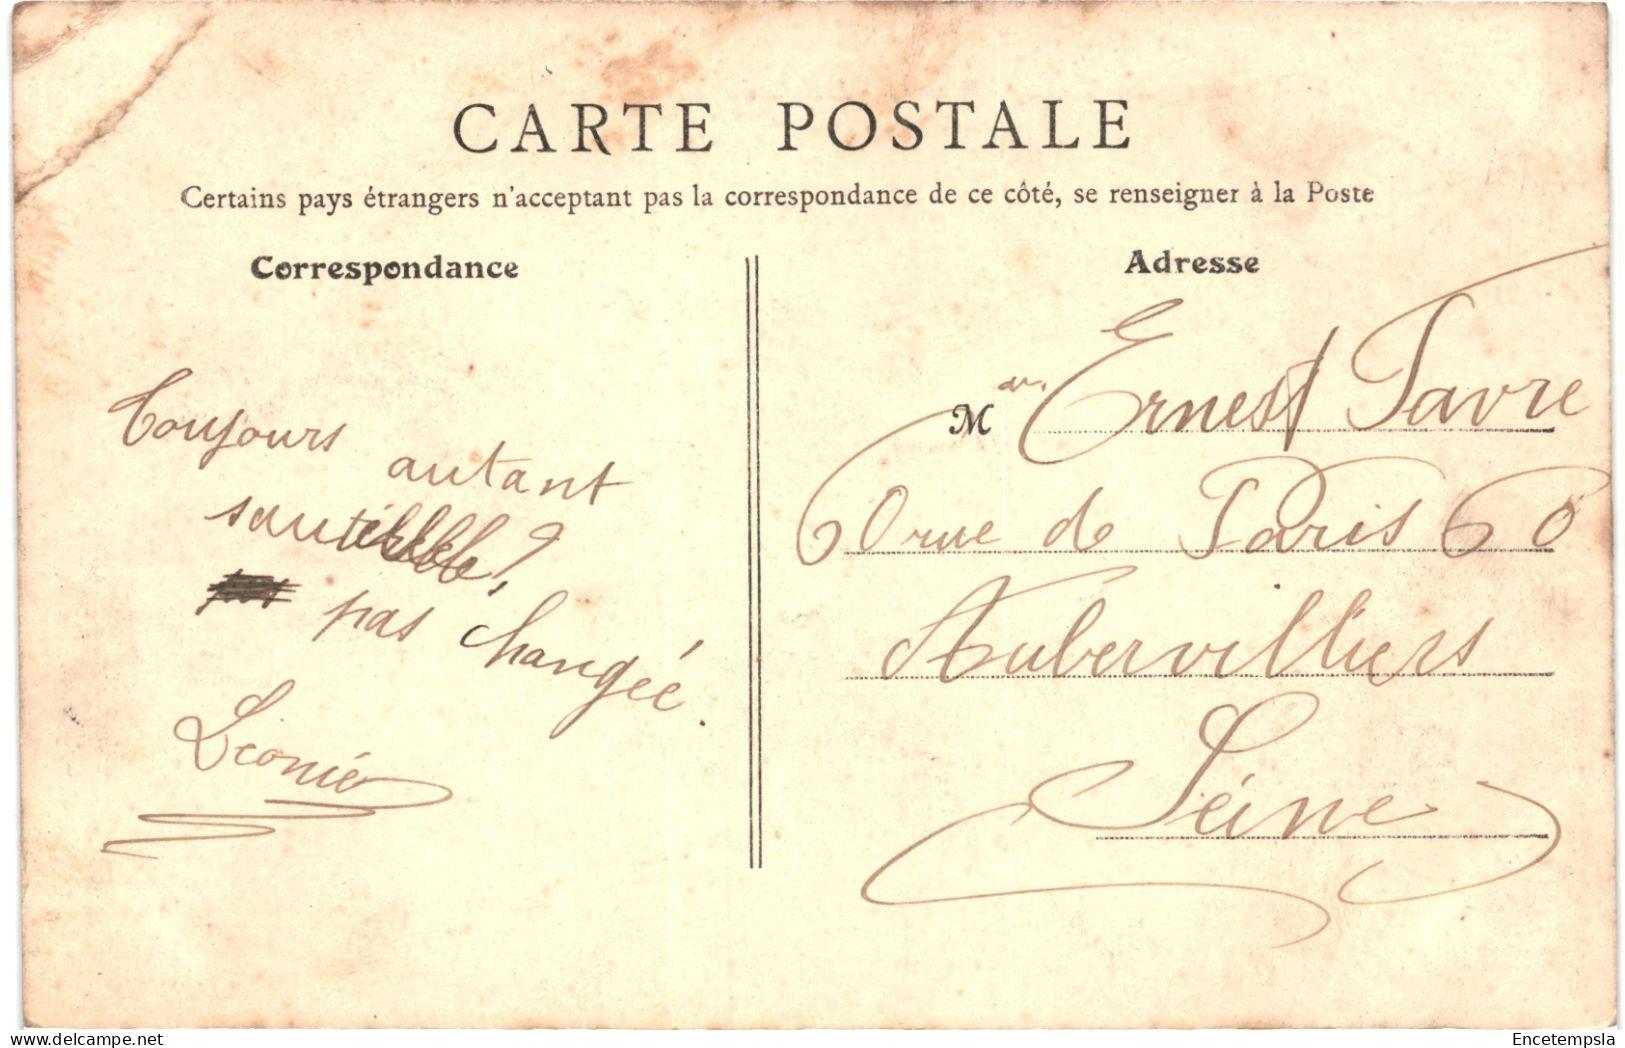 CARTE POSTALE
Certains pays étrangers n'acceptant pas la correspondance de ce côté, se renseigner à la Poste
Correspondance
Toujours
autant
?
pas changée.
Léonie
Adresse
M Ernest Favre
60 rue de Paris 60
Aubervilliers
Seine
Encetempsla